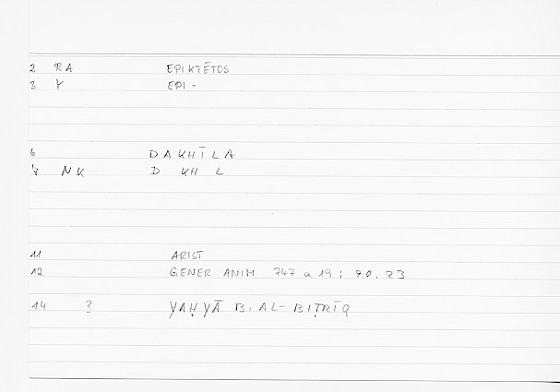 2 RA EPIKTĒTOS
3 Y EPI-
6 DAKHĪLA
7 NK D KH L
11 ARIST
12 GENER ANIM 747 a 19 ; 90.23
14 3 YAḤYĀ B. AL-BIṬRĪQ